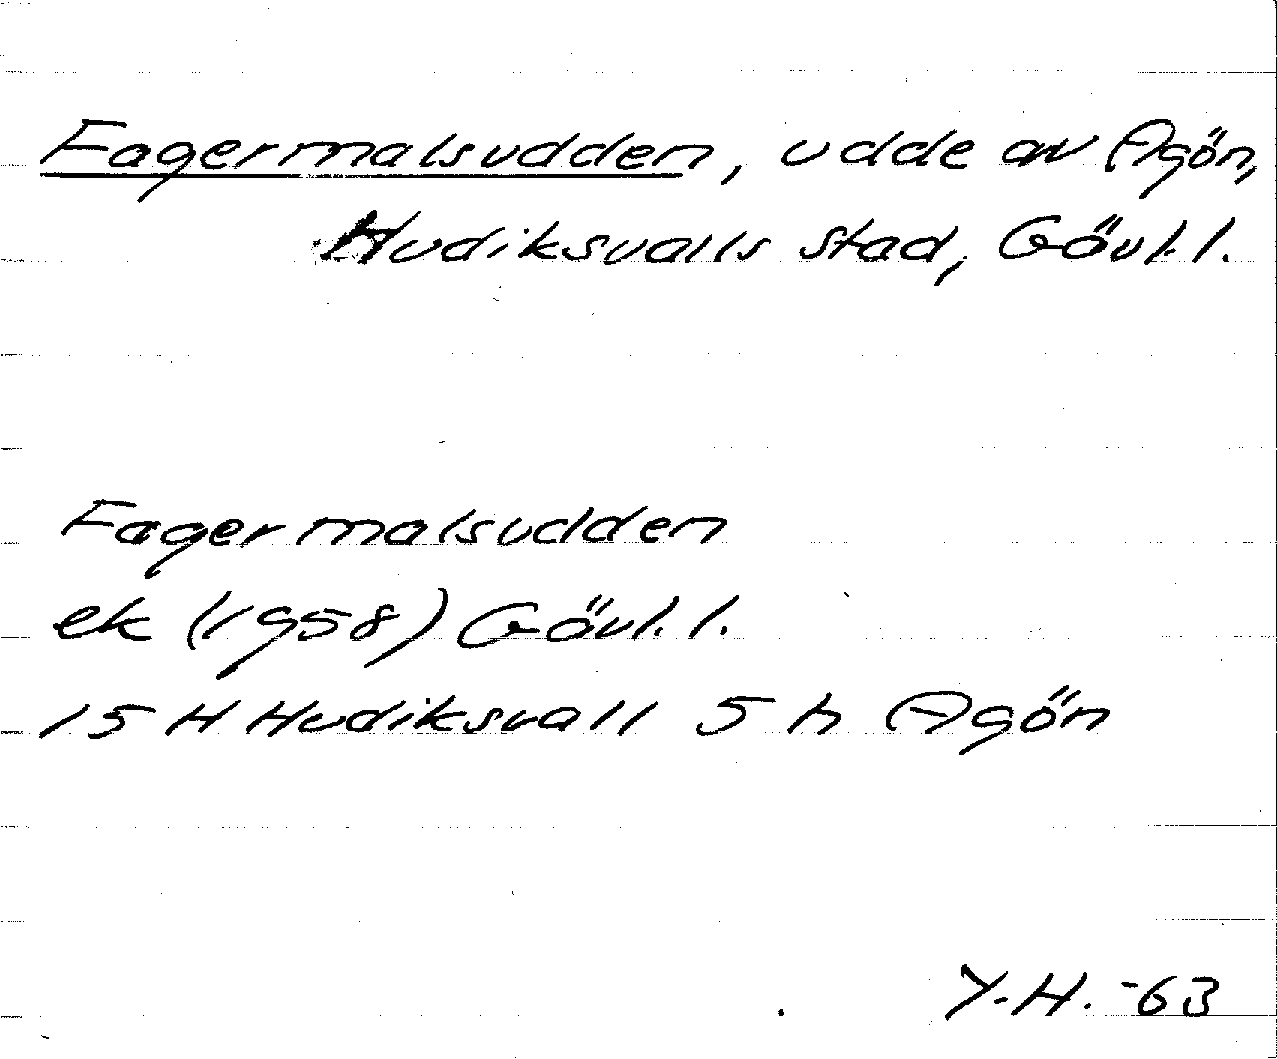 Fagermalsudden, udde av Agön,
Hudiksvalls stad, Gävl. l.
Fagermalsudden
ek (1958) Gävl. l.
15 H Hudiksvall 5 h Agön
Y.H. -63